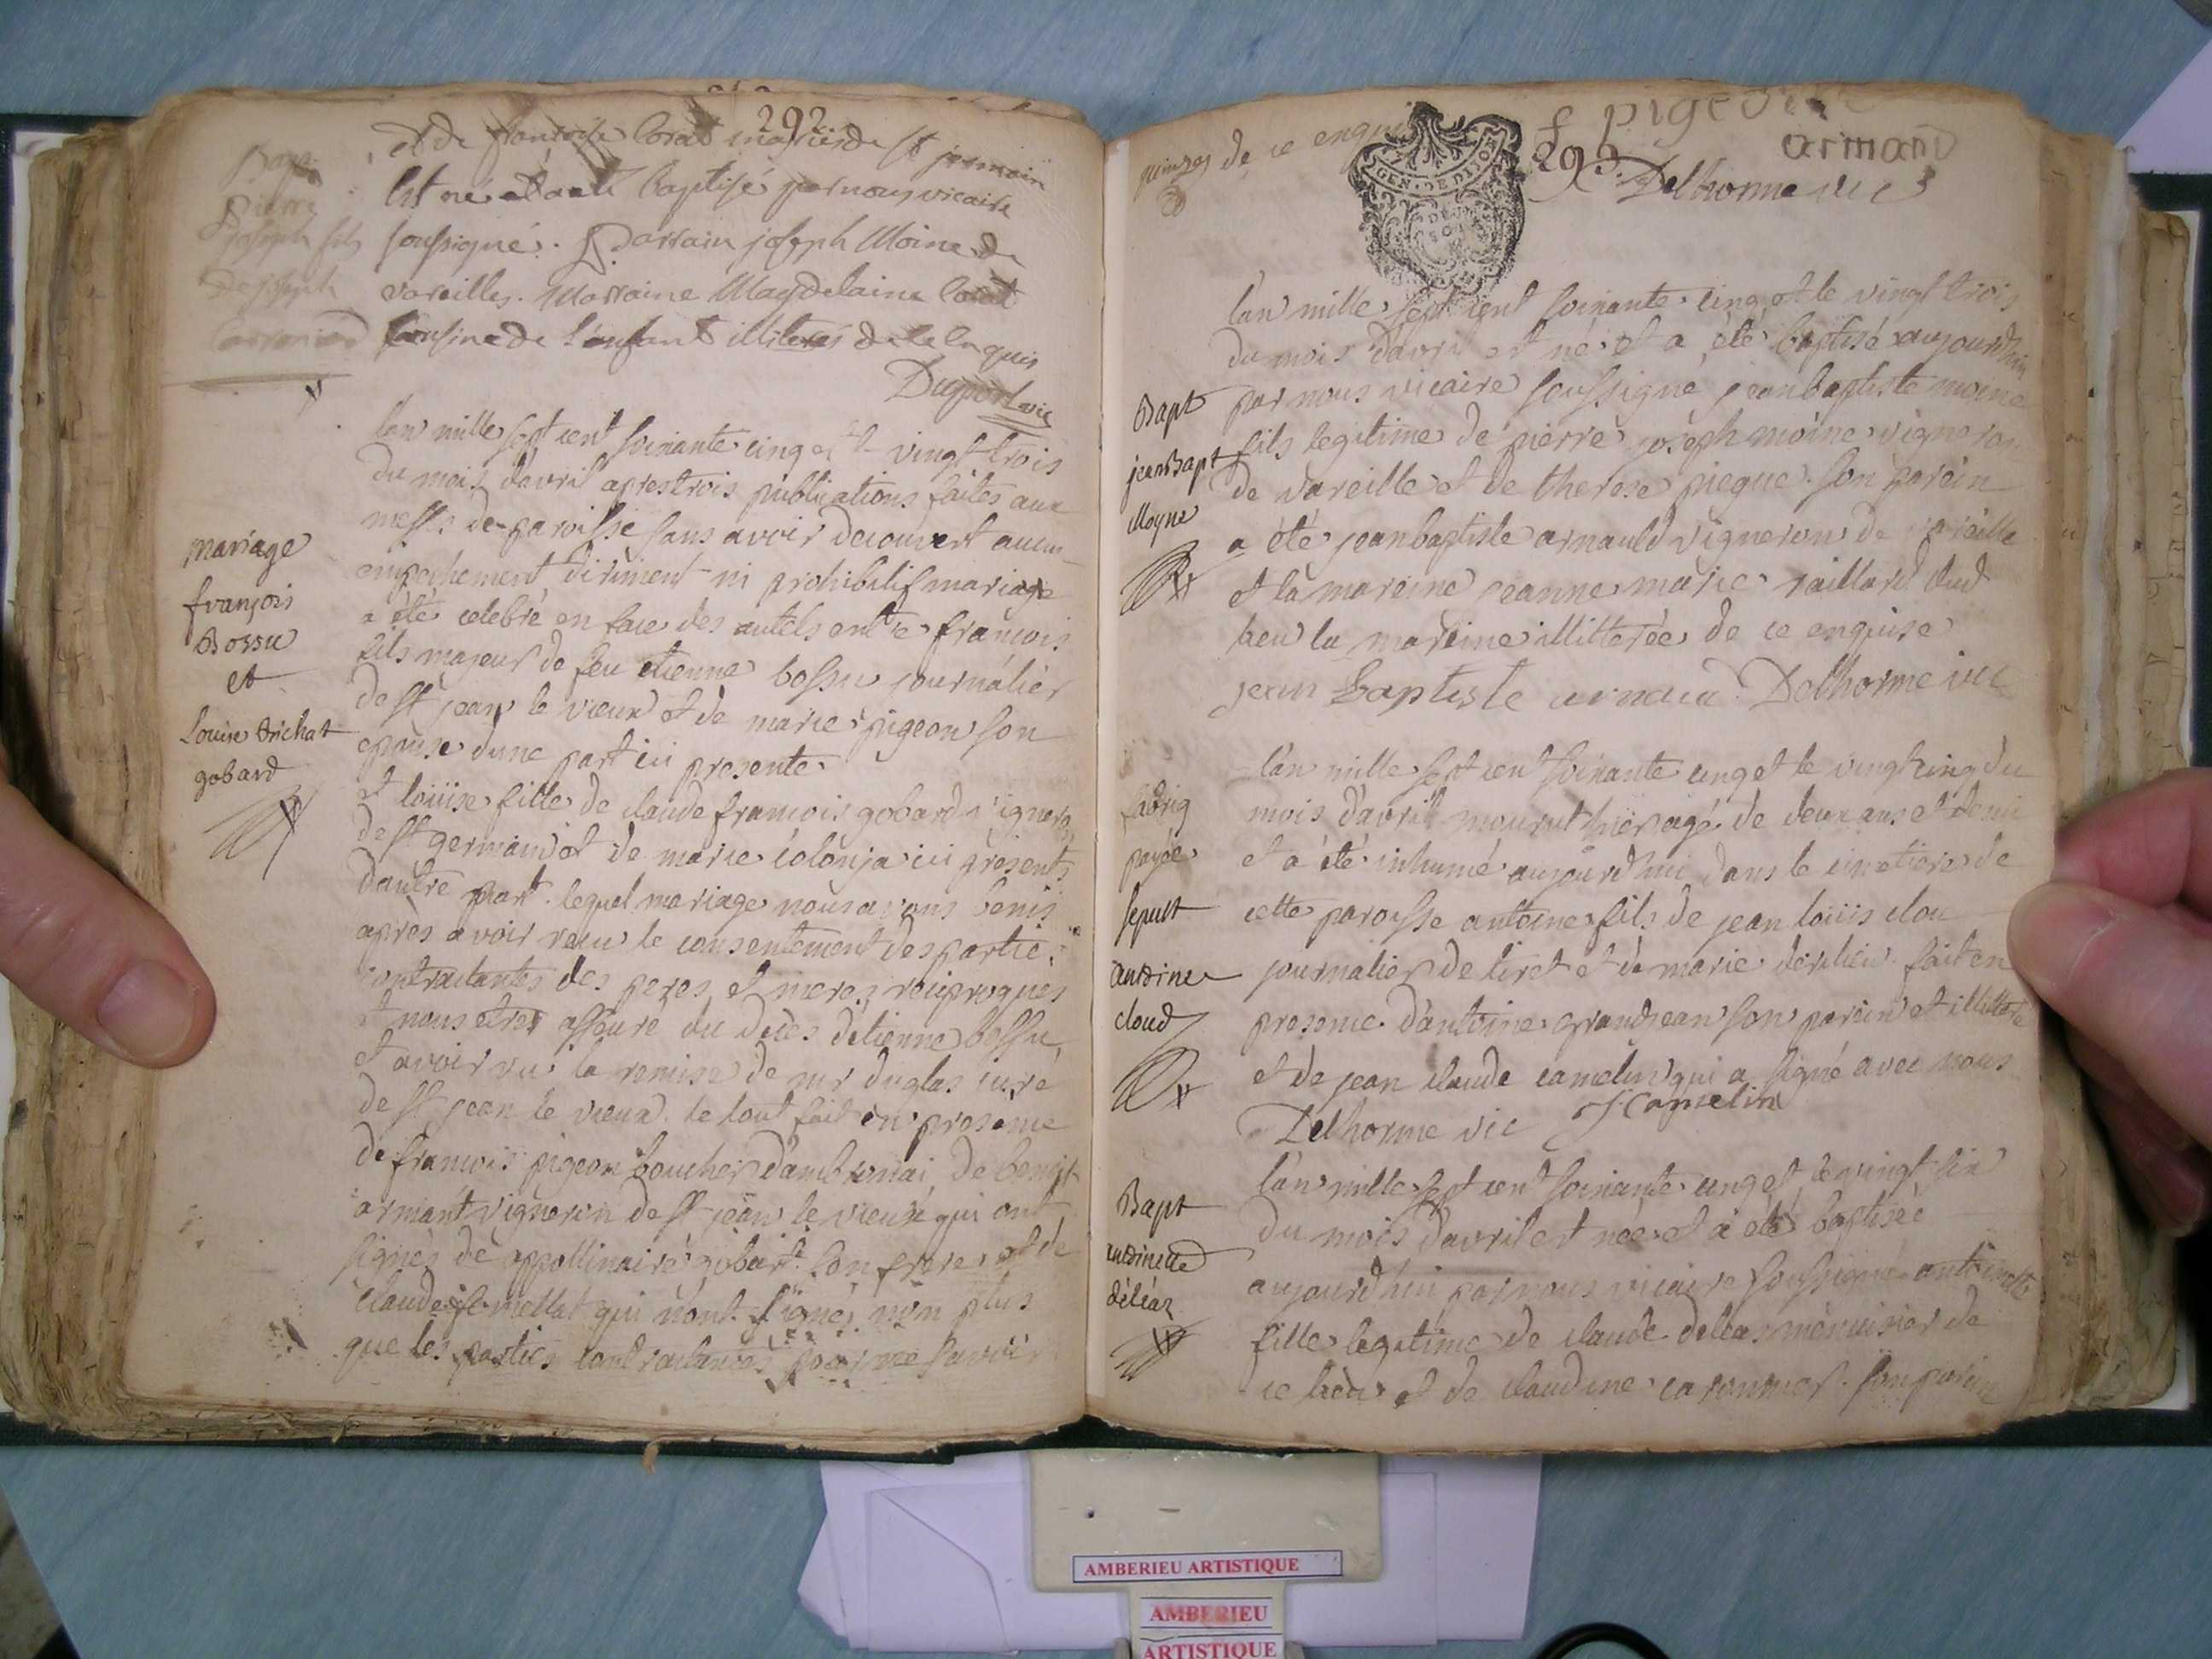 292
et de françoise Corat mariés de st jermain
Est né et a eté baptisé par nous vicaire
soussigné. Parrain joseph Moine de
vareilles. Marraine Magdelaine Corat
Cousine de l'enfant illiterés de ce enquis
Duport vic
Bapt
Pierre
joseph fils
de joseph
mariage
françois
Bossu
et
Louise Brichat
gobard
lan mille sept cent soixante cinq et le vingt trois
du mois d'avril apres trois publications faites aux
messes de paroisse sans avoir decouvert aucun
empechement diriment ni prohibitif mariage
a été celebré en face des autels entre françois
fils majeur de feu etienne bossu journalier
de st jean le vieux et de marie pigeon son
epouse dune part ici presente
et loüise fille de claude francois gobard vigneron
de st germain et de marie colonja ici presents
dautre part. lequel mariage nous avons benis
après avoir recu le consentement des parties
contractantes des peres et meres reciproques
et nous etres assuré du deces d'etienne bossu,
et avoir vu la remise de mr duglas curé
de st jean le vieux. le tout fait en presence
de francois pigeon boucher d'ambronai, de benoit
armant vigneron de st jean le vieux qui ont
signés de appollinaire gobart son frere et de
claude jemellat qui n'ont signés non plus
que les parties contractantes pour ne savoir
requises de ce enquis
GEN. DE DIJON
293
f pigeon
armand
Delhorme vic
Bapt
jean Bapt
Moyne
lan mille sept cent soixante cinq et le vingt trois
du mois d'avril est né et a été baptisé aujourdhui
par nous vicaire soussigné jean baptiste moine
fils legitime de pierre joseph moine vigneron
de vareille et de therese pieque. son parein
a été jean baptiste arnauld vigneron de vareille
et la mareine jeanne marie raillard dud
lieu la mareine illitterée de ce enquise
jean Baptiste arnaud Delhorme vic
payée
sepult
antoine
cloud
l'an mille sept cent soixante cinq et le vingt cinq du
mois d'avril mourut hier agé de deux ans et demi
et a été inhumé aujourd'hui dans le cimetiere de
cette paroisse antoine fils de jean loüis clou
journalier de tiret et de marie derilieu. fait en
presence d'antoine grandjean son parein et illitteré
et de jean claude camelin qui a signé avec nous
Delhorme vic J: Camelin
Bapt
antoinette
déléaz
l'an mille sept cent soixante cinq et le vingt six
du mois d'avril est née et a été baptisée
aujourd'hui par nous vicaire soussigné antoinette
fille legitime de claude deleas menuisier de
ce lieu et de claudine caronnier. son parein
AMBERIEU ARTISTIQUE
AMBERIEU
ARTISTIQUE